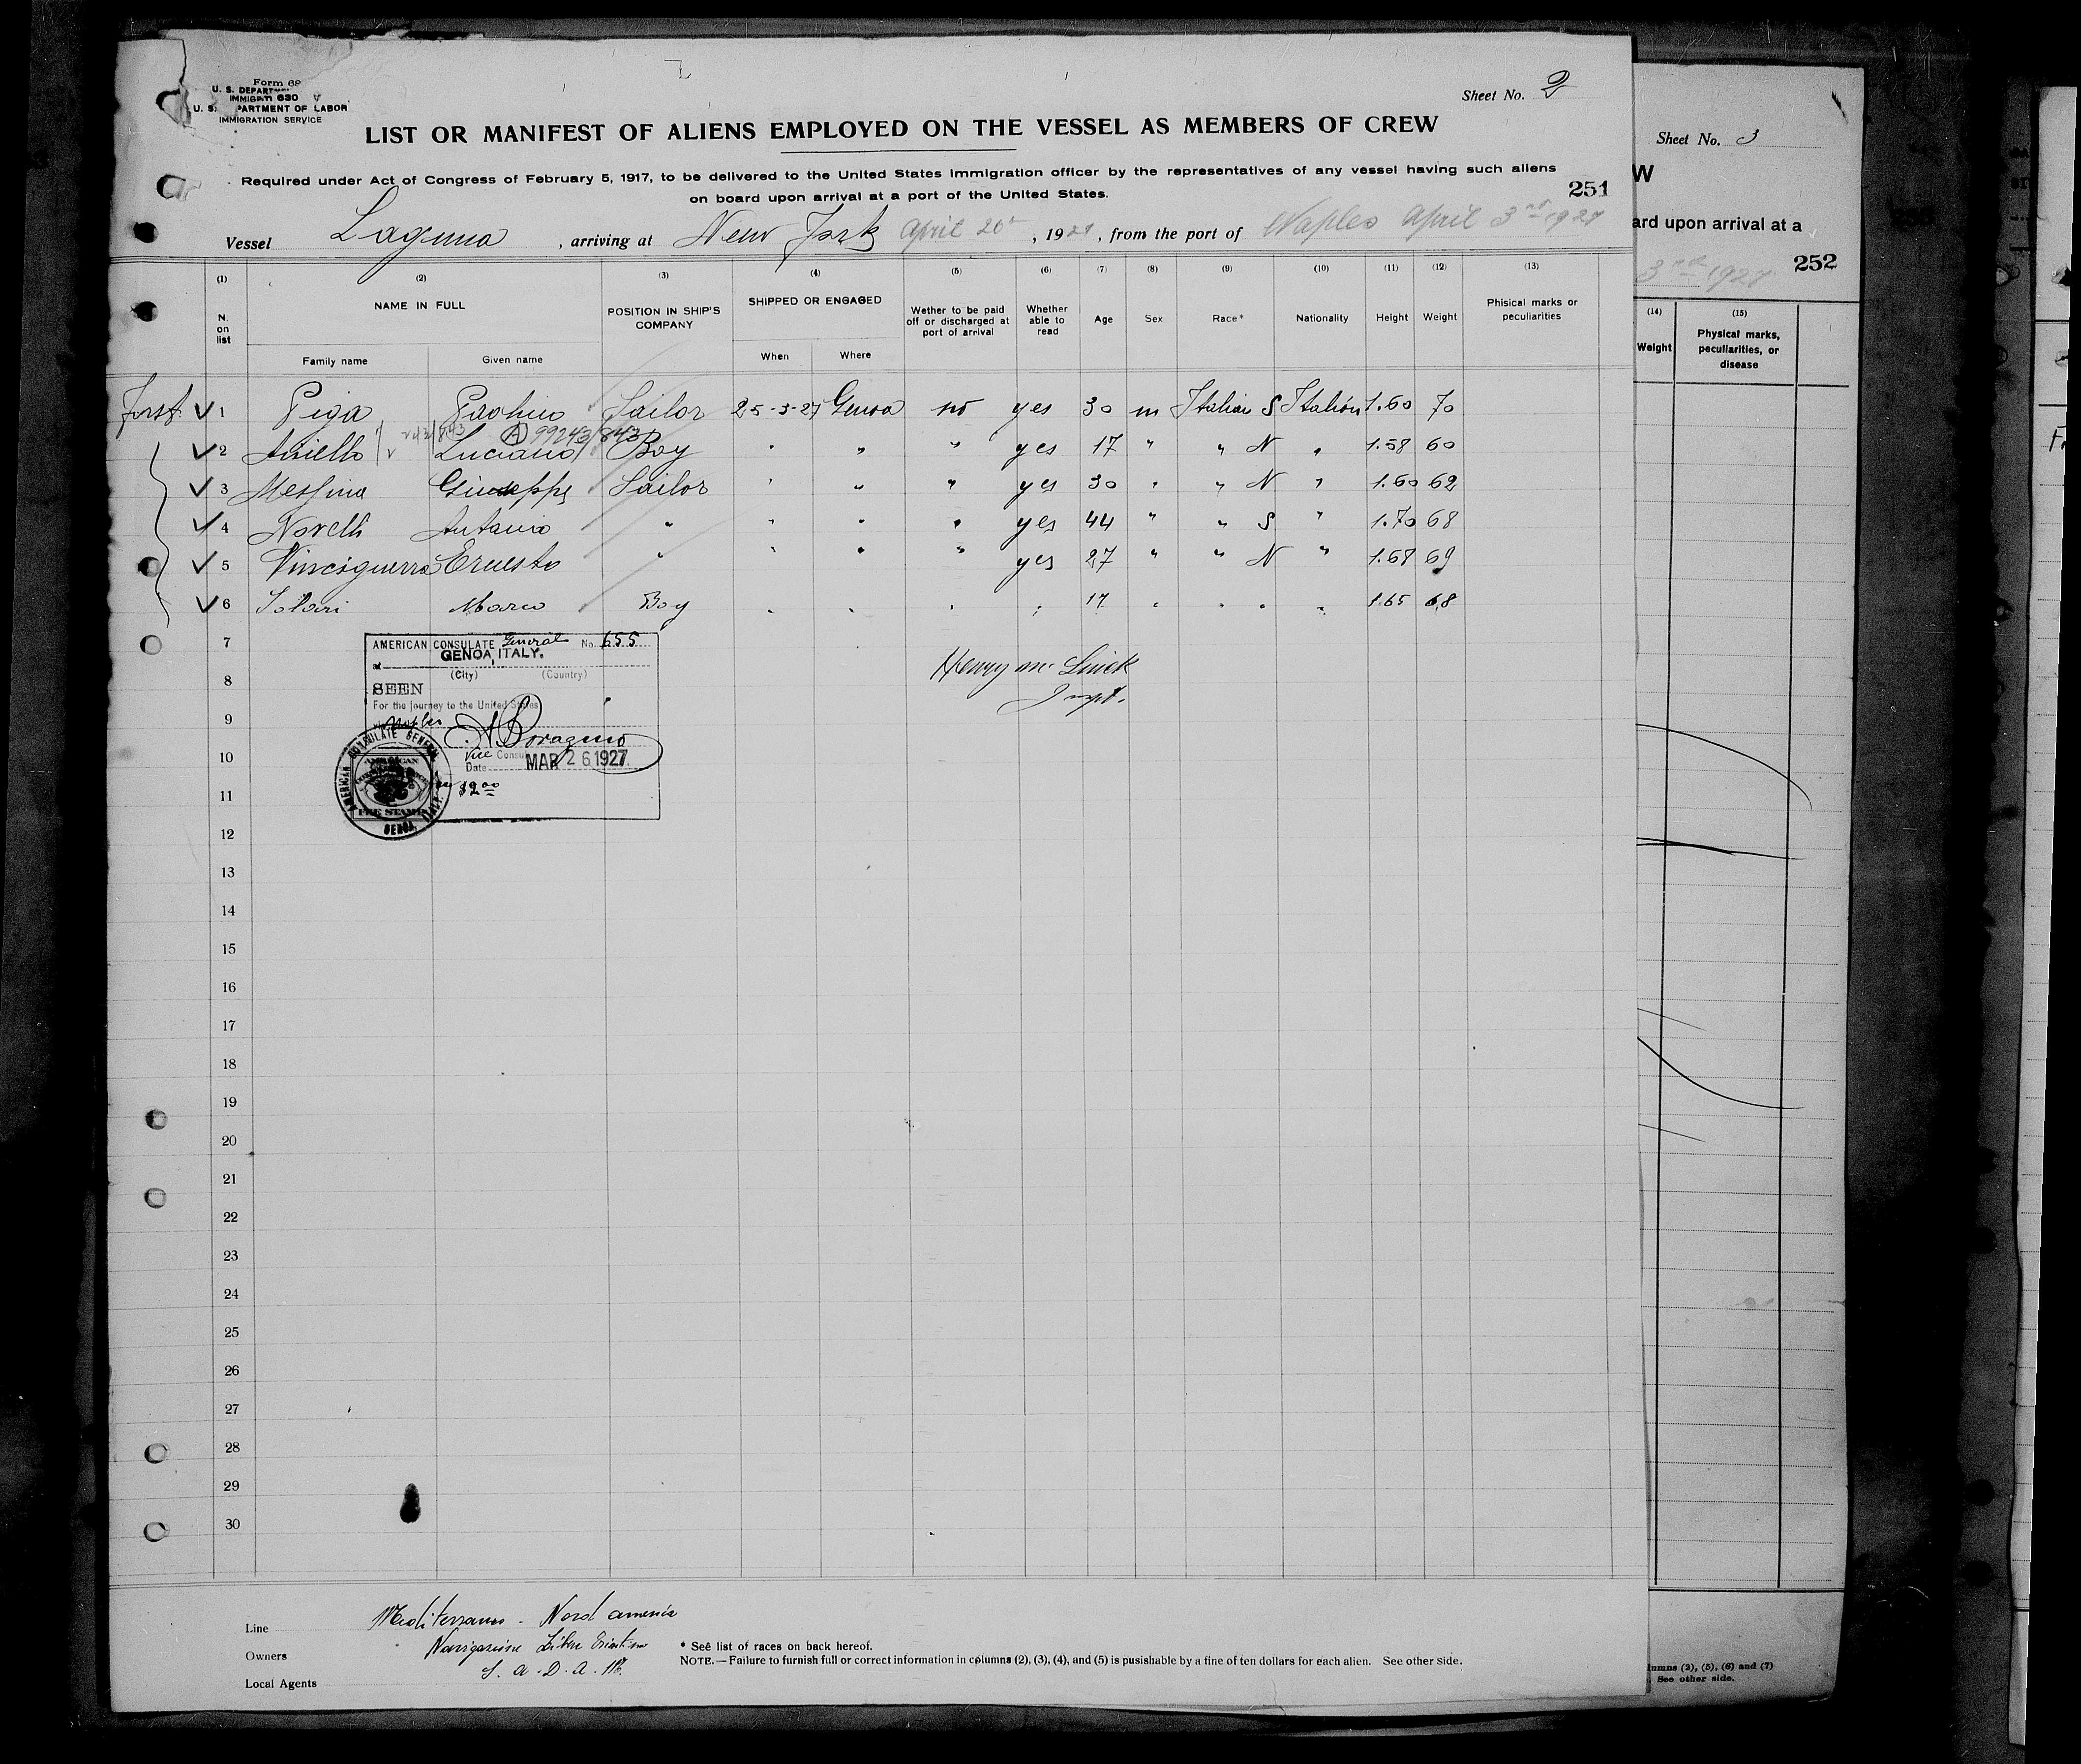 Form 68
U. S. DEPARTM
IMMIGRATI 630
U. S. PARTMENT OF LABOR
IMMIGRATION SERVICE
Sheet No. 2
LIST OR MANIFEST OF ALIENS EMPLOYED ON THE VESSEL AS MEMBERS OF CREW
Required under Act of Congress of February 5, 1917, to be delivered to the United States immigration officer by the representatives of any vessel having such aliens
on board upon arrival at a port of the United States.
251
Vessel Laguna, arriving at New York April 20th, 1927, from the port of Naples April 3rd 1927
(1) (2) (3) (4) (5) (6) (7) (8) (9) (10) (11) (12) (13)
N. on list NAME IN FULL POSITION IN SHIP'S COMPANY SHIPPED OR ENGAGED Wether to be paid off or discharged at port of arrival Whether able to read Age Sex Race* Nationality Height Weight Phisical marks or peculiarities
Family name Given name When Where
✓ 1 Piga Paolino Sailor 25-3-27 Genoa no yes 30 m Italian S Italian 1.60 70
A 99243/843
✓ 2 Aniello Luciano Boy " " " yes 17 " " N " 1.58 60
✓ 3 Messina Giuseppe Sailor " " " yes 30 " " N " 1.60 62
✓ 4 Novelli Antonio " " " " yes 44 " " S " 1.70 68
✓ 5 Vinciguerra Ernesto " " " " yes 27 " " N " 1.68 69
✓ 6 Solari Mario Boy " " " " 17 " " " " 1.65 68
7
8
9
10
11
12
13
14
15
16
17
18
19
20
21
22
23
24
25
26
27
28
29
30
AMERICAN CONSULATE General No. 655
at GENOA, ITALY.
(City) (Country)
SEEN
For the journey to the United States
via Naples
Vice Consul
Date MAR 26 1927
$2.00
AMERICAN CONSULATE GENERAL
AMERICAN
FEE STAMP
GENOA, ITALY.
Henry
Inspt.
Line Mediterraneo - Nord America
Owners Navigazione Libera Triestina
Local Agents
* See list of races on back hereof.
NOTE. — Failure to furnish full or correct information in columns (2), (3), (4), and (5) is pusishable by a fine of ten dollars for each alien. See other side.
Sheet No. 3
W
ard upon arrival at a
252
3rd 1927
(14) (15)
Weight Physical marks, peculiarities, or disease
lumns (2), (5), (6) and (7)
See other side.